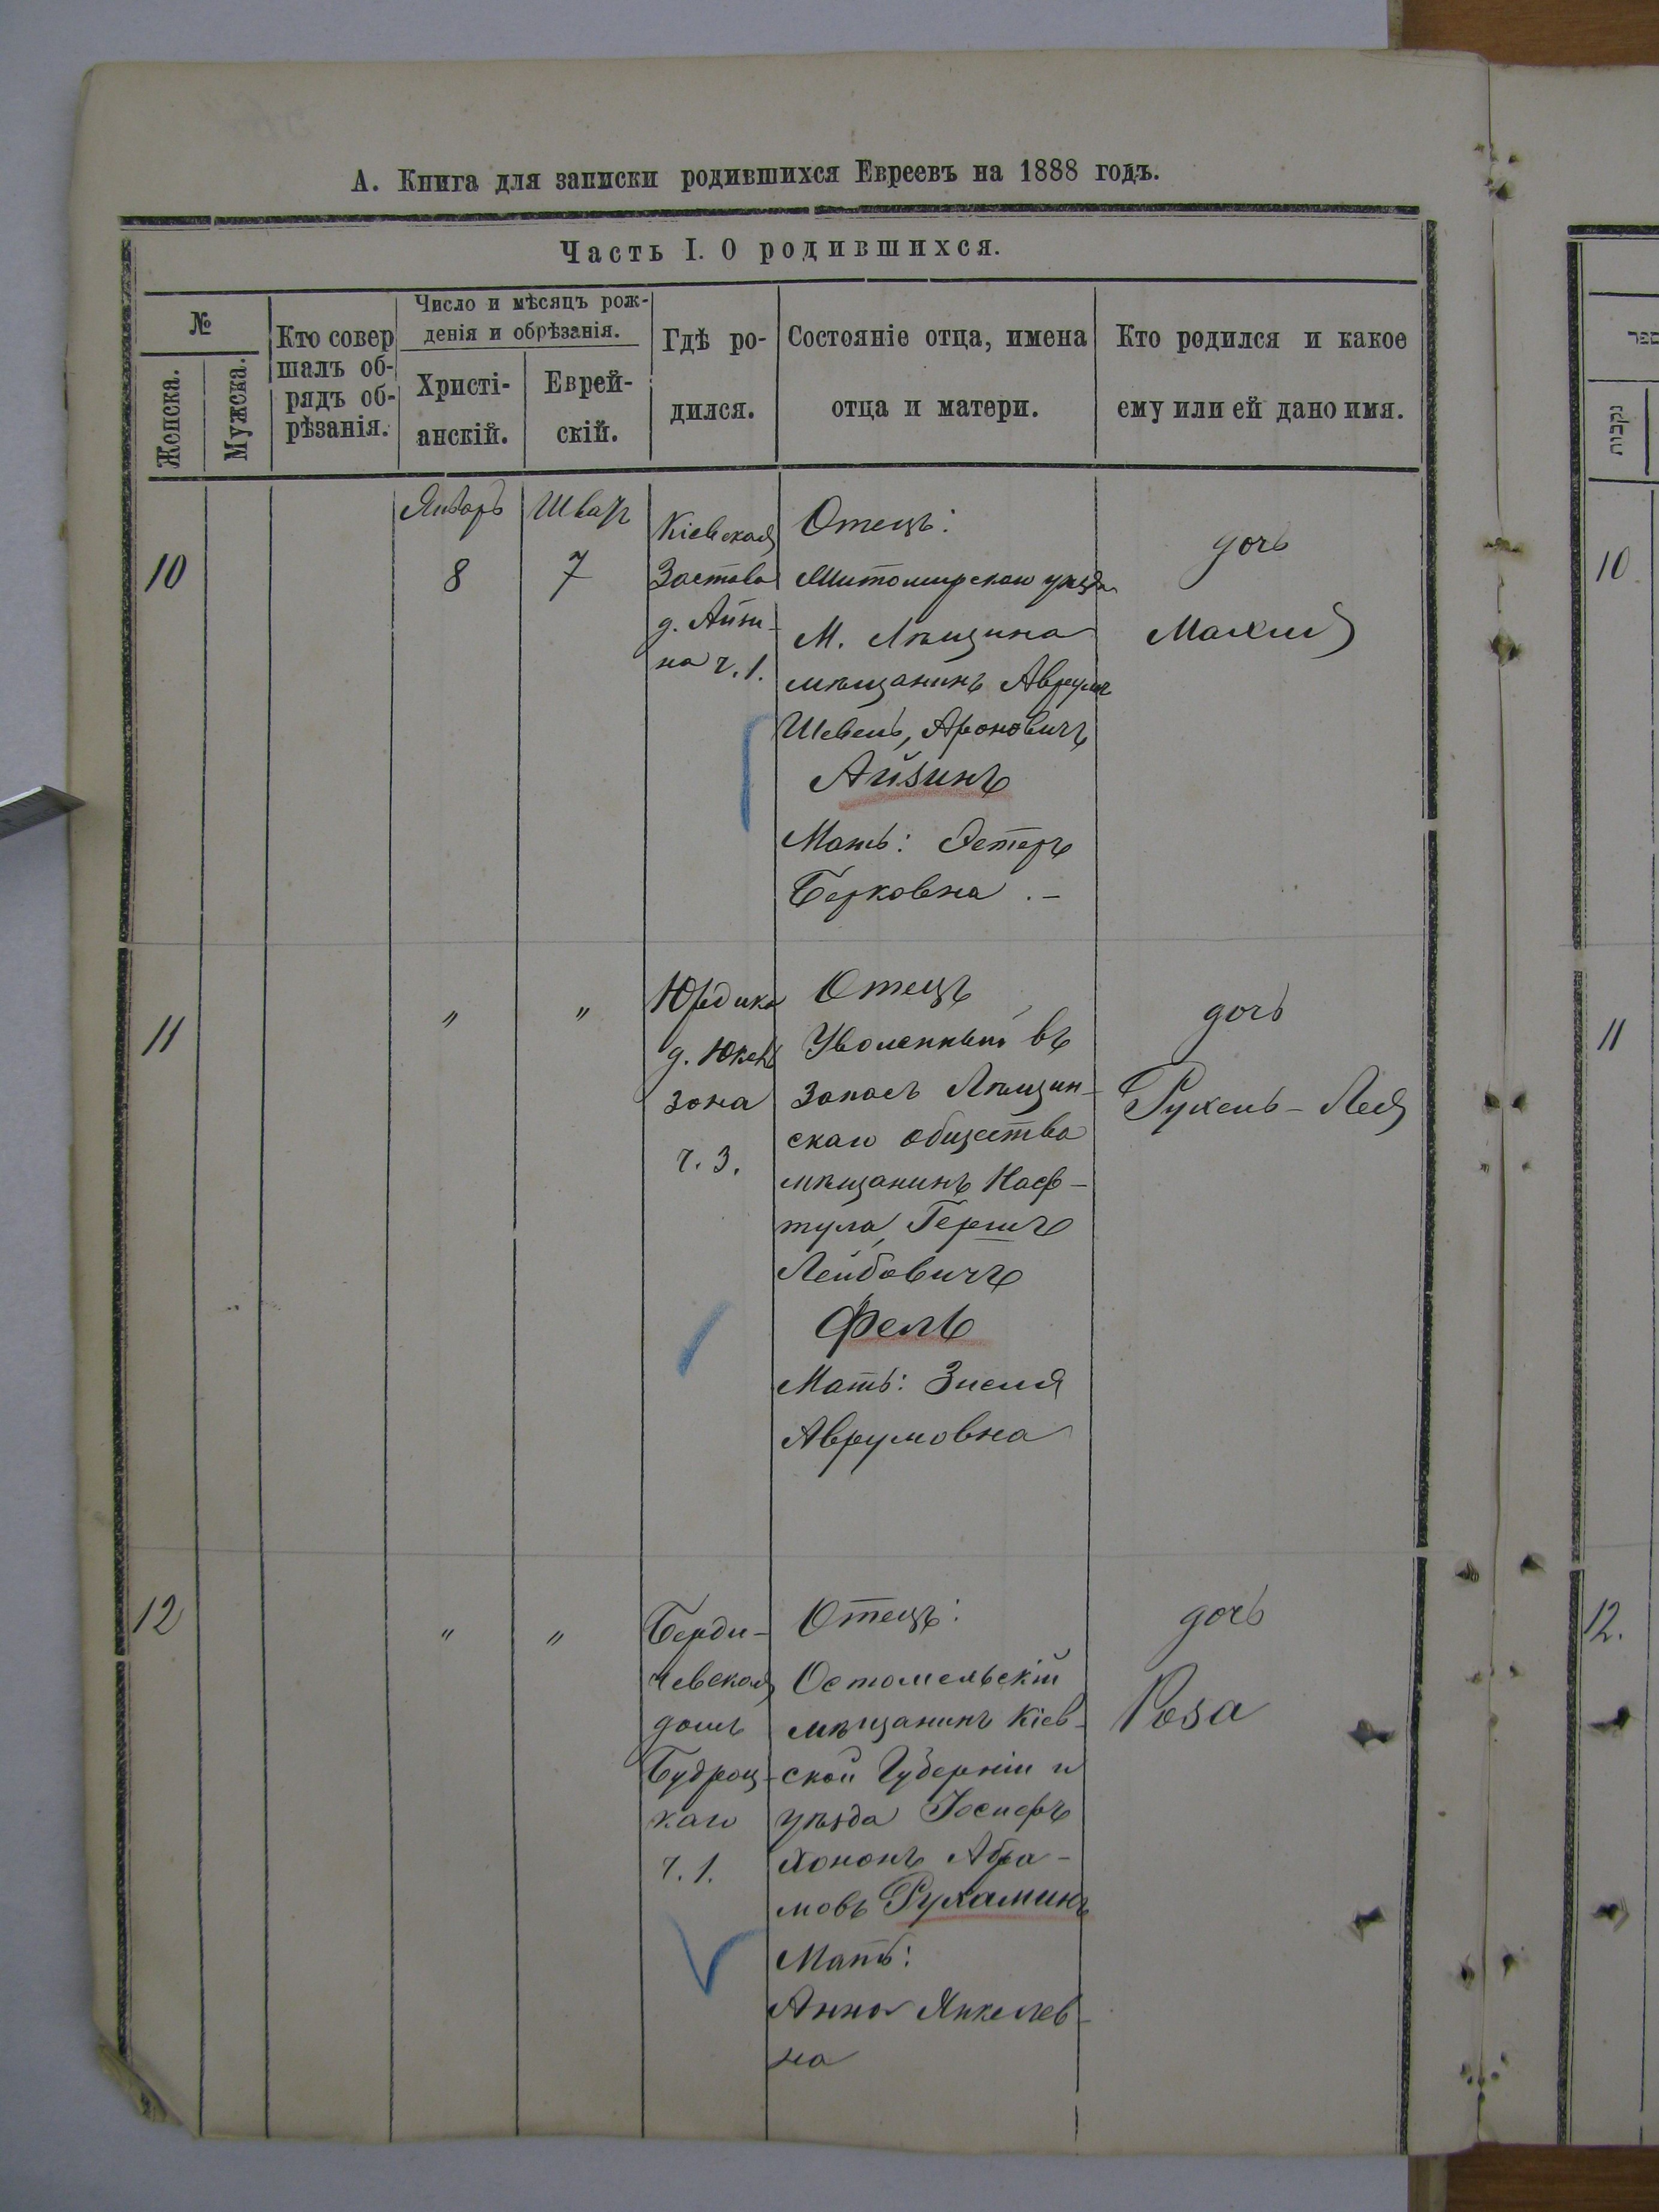 А. Книга для записки родившихся Евреевъ на 1888 годъ.
Часть I. О родившихся.
№
Женска.
Мужска.
Кто совер
шалъ об-
рядъ об-
рѣзанія.
Число и мѣсяцъ рож-
денія и обрѣзанія.
Христі-
анскій.
Еврей-
скій.
Гдѣ ро-
дился.
Состояніе отца, имена
отца и матери.
Кто родился и какое
ему или ей дано имя.
10
Январь
8
Шват
7
Кіевская
Застава
д. Айзи-
на ч. 1.
Отецъ:
Житомирскаго уѣзда
М. Лѣщина
мѣщанинъ Аврумъ
Шевель, Ароновичъ
Айзинъ
Мать: Эстеръ
Берковна.-
дочь
Малия
11
"
"
Юрдика
д. Юкель
зона
ч. 3.
Отецъ
Уволенный въ
запасъ Лѣщин-
скаго общества
мѣщанинъ Наф-
тула, Гершъ
Лейбовичъ
Фель
Мать: Зисля
Аврумовна
дочь
Рухель-Лея
12
"
"
Берди-
чевская
домъ
Будроц-
каго
ч. 1.
Отецъ:
Остомельскій
мѣщанинъ Кіев-
ской Губерніи и
уѣзда Іосифъ
Хононъ Абра-
мовъ Рухаминъ
Мать:
Анна Янкелев-
на
дочь
Роза
ספר
נקבות
10
11
12.